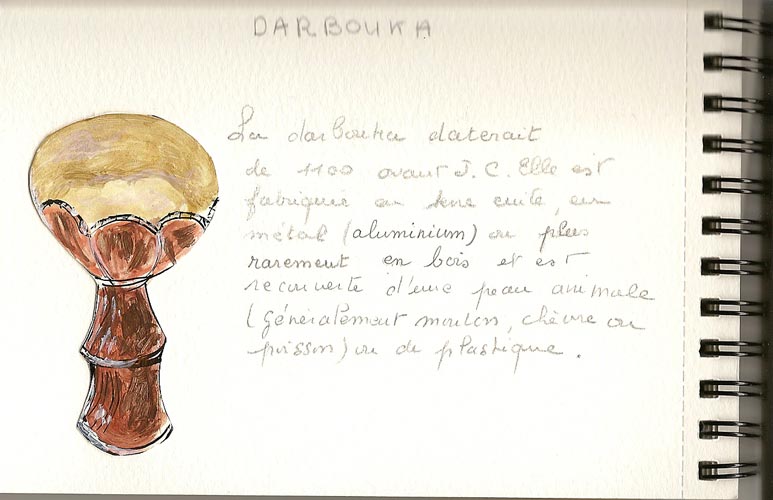 DARBOUKA
La darbouka daterait
de 1100 avant J.C. Elle est
fabriquée en terre cuite, en
métal (aluminium) ou plus
rarement en bois et est
recouverte d'une peau animale
(généralement mouton, chèvre ou
poisson) ou de plastique.